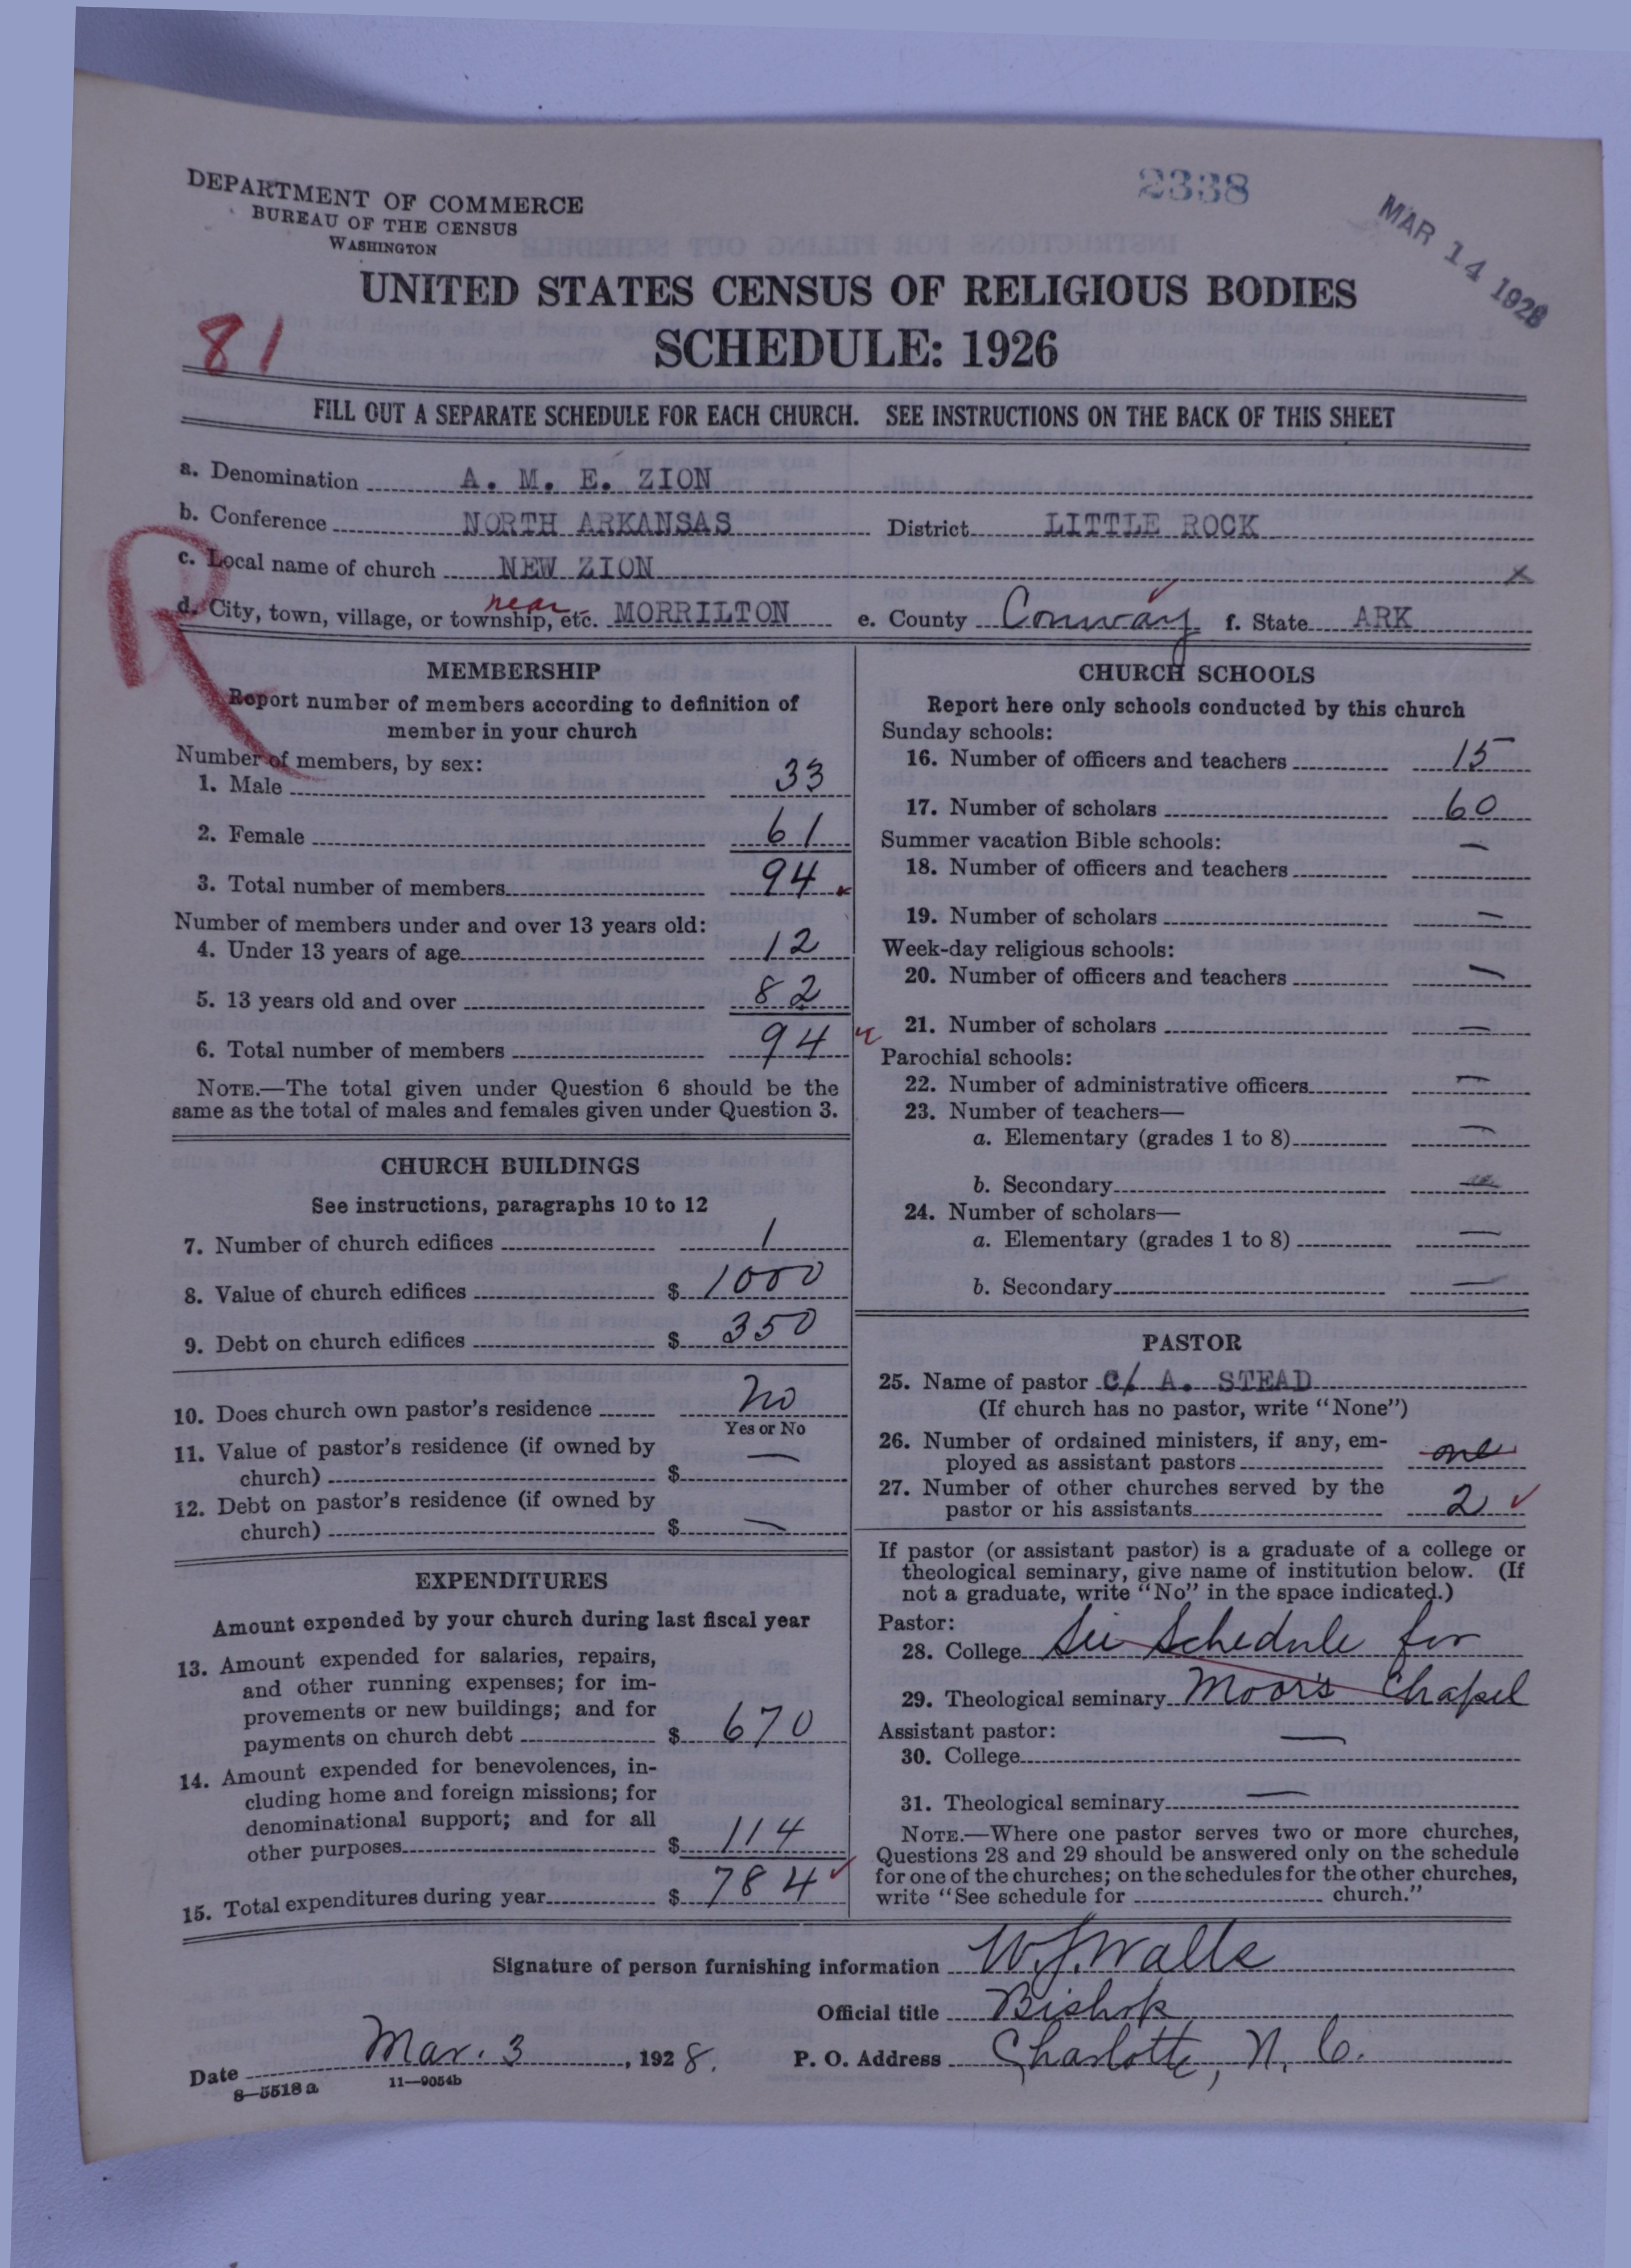 DEPARTMENT OF COMMERCE
BUREAU OF THE CENSUS
WASHINGTON
2338
MAR 14 1928
UNITED STATES CENSUS OF RELIGIOUS BODIES
81
SCHEDULE: 1926
FILL OUT A SEPARATE SCHEDULE FOR EACH CHURCH. SEE INSTRUCTIONS ON THE BACK OF THIS SHEET
R
a. Denomination A. M. E. ZION
b. Conference NORTH ARKANSAS District LITTLE ROCK
c. Local name of church NEW ZION x
d. City, town, village, or township, etc. near MORRILTON e. County Conway f. State ARK
MEMBERSHIP
Report number of members according to definition of
member in your church
Number of members, by sex:
1. Male 33
2. Female 61
3. Total number of members 94
Number of members under and over 13 years old:
4. Under 13 years of age 12
5. 13 years old and over 82
6. Total number of members 94
NOTE.—The total given under Question 6 should be the
same as the total of males and females given under Question 3.
CHURCH BUILDINGS
See instructions, paragraphs 10 to 12
7. Number of church edifices 1
8. Value of church edifices $ 1000
9. Debt on church edifices $ 350
10. Does church own pastor's residence no
Yes or No
11. Value of pastor's residence (if owned by
church) $ —
12. Debt on pastor's residence (if owned by
church) $ —
EXPENDITURES
Amount expended by your church during last fiscal year
13. Amount expended for salaries, repairs,
and other running expenses; for im-
provements or new buildings; and for
payments on church debt $ 670
14. Amount expended for benevolences, in-
cluding home and foreign missions; for
denominational support; and for all
other purposes $ 114
15. Total expenditures during year $ 784
CHURCH SCHOOLS
Report here only schools conducted by this church
Sunday schools:
16. Number of officers and teachers 15
17. Number of scholars 60
Summer vacation Bible schools:
18. Number of officers and teachers —
19. Number of scholars —
Week-day religious schools:
20. Number of officers and teachers —
21. Number of scholars —
Parochial schools:
22. Number of administrative officers —
23. Number of teachers—
a. Elementary (grades 1 to 8) —
b. Secondary —
24. Number of scholars—
a. Elementary (grades 1 to 8) —
b. Secondary —
PASTOR
25. Name of pastor C/ A. STEAD
(If church has no pastor, write "None")
26. Number of ordained ministers, if any, em-
ployed as assistant pastors one
27. Number of other churches served by the
pastor or his assistants 2
If pastor (or assistant pastor) is a graduate of a college or
theological seminary, give name of institution below. (If
not a graduate, write "No" in the space indicated.)
Pastor:
28. College See Schedule for
29. Theological seminary Moor's Chapel
Assistant pastor:
30. College —
31. Theological seminary —
NOTE.—Where one pastor serves two or more churches,
Questions 28 and 29 should be answered only on the schedule
for one of the churches; on the schedules for the other churches,
write "See schedule for church."
Signature of person furnishing information W. J. Walls
Official title Bishop
Date Mar. 3, 1928. P. O. Address Charlotte, N. C.
8—5518 a 11—9054b